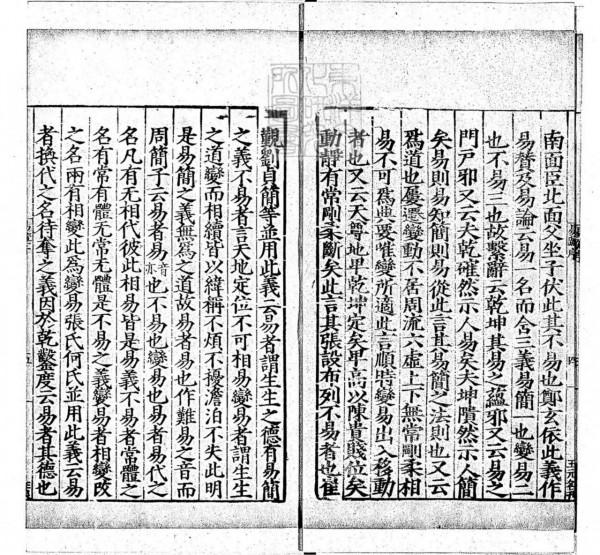 南面臣北面父坐子伏此其不易也鄭玄依此義作
易贊及易論云易一名而含三義易簡一也變易二
也不易三也故繫辭云乾坤其易之蘊邪又云易之
門戶邪又云夫乾確然示人易矣夫坤隤然示人簡
矣易則易知簡則易從此言其易簡之法則也又云
為道也屢遷變動不居周流六虛上下無常剛柔相
易不可為典要唯變所適此言順時變易出入移動
者也又云天尊地卑乾坤定矣卑高以陳貴賤位矣
動靜有常剛柔斷矣此言其張設布列不易者也崔
覲劉貞簡等並用此義云易者謂生生之德有易簡
之義不易者言天地定位不可相易變易者謂生生
之道變而相續皆以緯稱不煩不擾澹泊不失此明
是易簡之義無為之道故易者易也作難易之音而
周簡子云易者易音亦也不易也變易也易者易代之
名凡有無相代彼此相易皆是易義不易者常體之
名有常有體無常無體是不易之義變易者相變改
之名兩有相變此為變易張氏何氏並用此義云易
者換代之名待奪之義因於乾鑿度云易者其德也